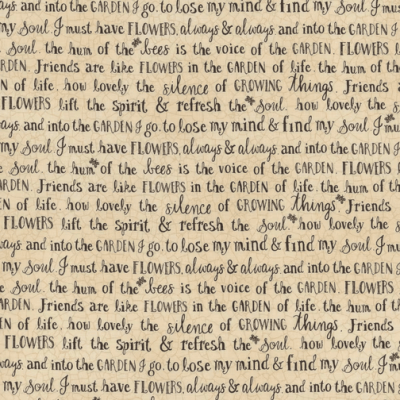 ays. and into the GARDEN I go. to lose my mind & find my Soul. I mus
my Soul. I must have FLOWERS, always & always & and into the GARDEN
Soul. the hum of the bees is the voice of the GARDEN. FLOWERS l
RDEN. Friends are like FLOWERS in the GARDEN of life. the hum of the
N of life. how lovely the silence of GROWING things. Friends a
FLOWERS lift the Spirit & refresh the Soul. how lovely the s
ays. and into the GARDEN I go. to lose my mind & find my Soul. I mus
my Soul. I must have FLOWERS, always & always & and into the GARDEN
Soul. the hum of the bees is the voice of the GARDEN. FLOWERS
ARDEN. Friends are like FLOWERS in the GARDEN of life. the hum of th
EN of life. how lovely the silence of GROWING things Friends
FLOWERS lift the Spirit & refresh the Soul. how lovely the
ways. and into the GARDEN I go. to lose my mind & find my Soul. I m
my Soul. I must have FLOWERS, always & always & and into the GARDEN
Soul. the hum of the bees is the voice of the GARDEN. FLOWERS
ARDEN. Friends are like FLOWERS in the GARDEN of life. the hum of t
EN of life. how lovely the silence of GROWING things. Friends
FLOWERS lift the Spirit & refresh the Soul. how lovely the s
ways. and into the GARDEN I go. to lose my mind & find my Soul. I mu
my Soul. I must have FLOWERS, always & always & and into the GARDEN